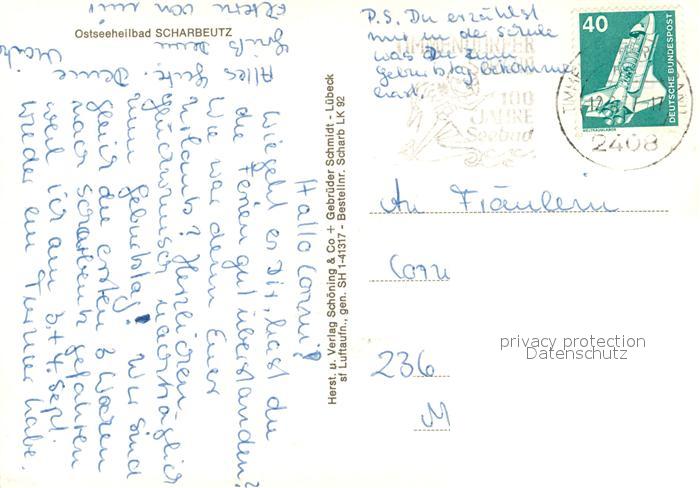 Ostseeheilbad SCHARBEUTZ
Hallo Conni!
Wie geht es Dir, hast du
die Ferien gut überstanden?
Wie war denn Euer
Urlaub? Herzlichen
Glückwunsch nachträglich
zum Geburtstag! Wir sind
gleich die ersten 3 Wochen
nach Scharbeutz gefahren
weil ich am 3.+4. Sept.
wieder ein Turnier habe.
Alles Gute. Deine
Grüß Deine
Eltern von mir
Herst. u. Verlag Schöning & Co + Gebrüder Schmidt - Lübeck
sf Luftaufn., gen. SH 1-41317 - Bestellnr. Scharb LK 92
P.S. Du erzählst
mir in der Schule
was Du zum
Geburtstag bekommen
hast.
TIMMENDORFER
100
JAHRE
Seebad
40
DEUTSCHE BUNDESPOST
WELTRAUMLABOR
2408
An Fräulein
Corn
236
M
privacy protection
Datenschutz